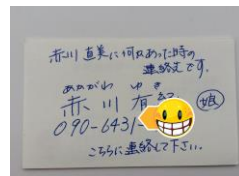 赤川 直美に何かあった時の
連絡先です。
あかがわ ゆき
赤川 有紀 (娘)
090-6431-
こちらに連絡して下さい。